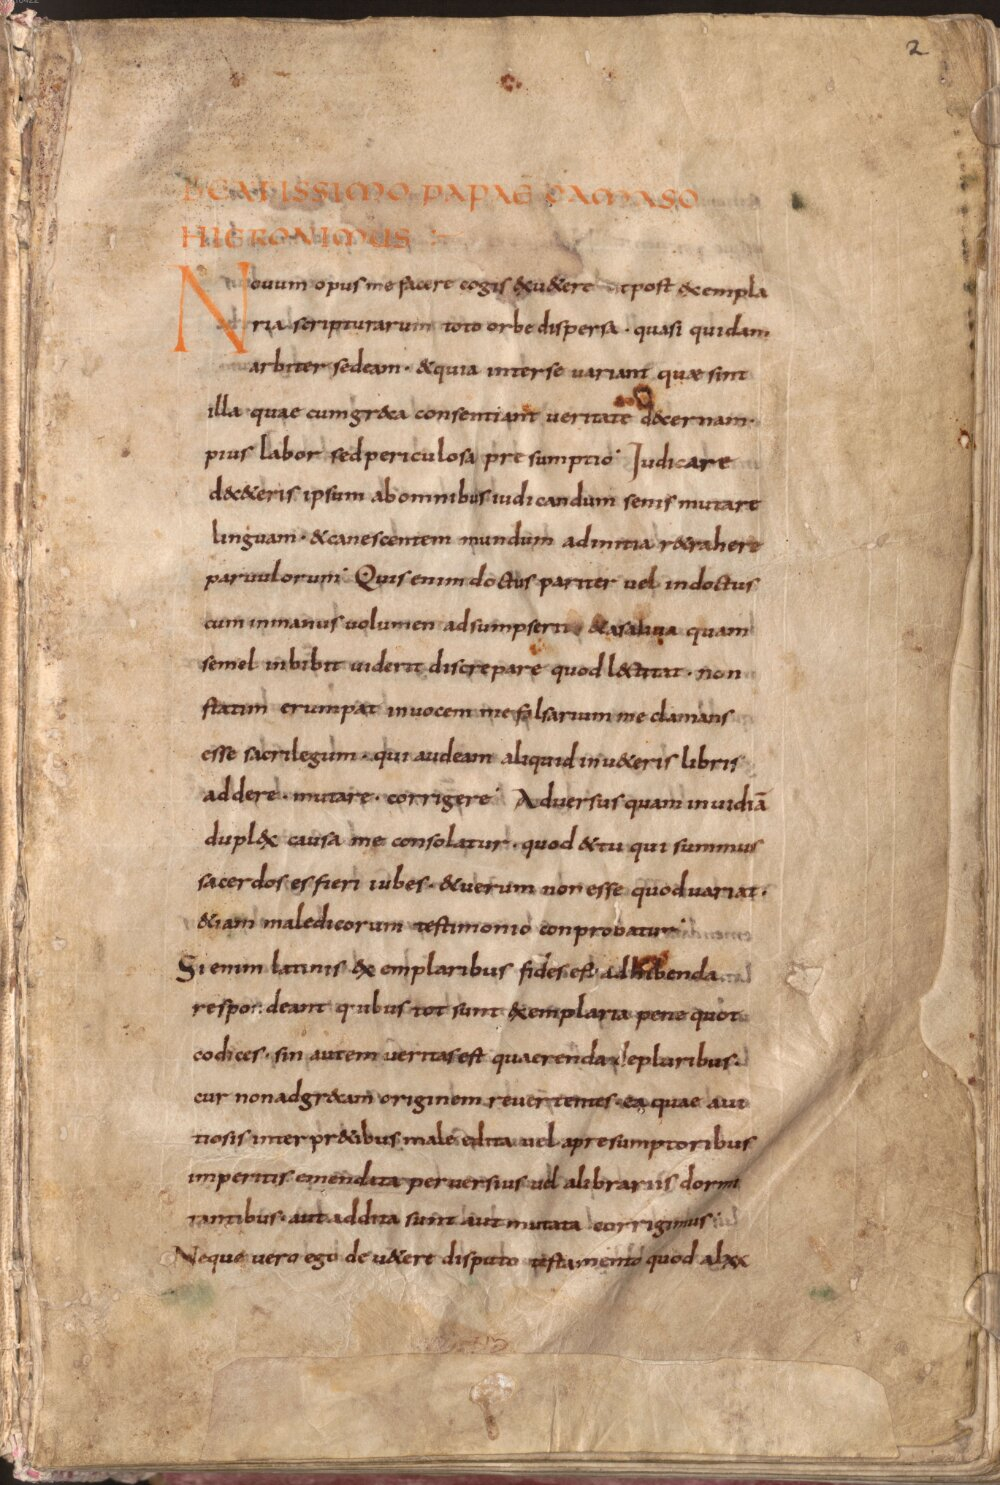 2
BEATISSIMO PAPAE DAMASO
HIERONIMUS :—
Nouum opus me facere cogis &xu&ere ut post exempla
ria scripturarum toto orbe dispersa · quasi quidam
arbiter sedeam · &quia interse variant quae sint
illa quae cumgr&ca consentiant veritate d&cernam ·
pius labor sedpericulosa presumptio · Judicare
d&c&eris ipsum abomnibus iudicandum senis mutare
linguam · &canescentem mundum adinitia r&rahere
paruulorum · Quis enim doctus pariter vel indoctus
cum inmanus volumen adsumpserit &asaliua quam
semel inbibit uiderit discrepare quod l&titat · non
statim erumpat inuocem me falsarium me clamans
esse sacrilegum · qui audeam aliquid inu&eris libris
addere · mutare · corrigere · Adversus quam inuidiā
dupl&x causa me consolatur · quod &tu qui summus
sacerdos es fieri iubes · &verum non esse quod variat ·
&iam maledicorum testimonio conprobatur ·
Si enim latinis &x emplaribus fides est adhibenda
respondeant quibus tot sunt &xemplaria pene quot
codices · sin autem veritas est quaerenda depluribus ·
cur nonadgr&cam originem revertentes · ea quae aut
tiosis interpr&ibus male edita vel apresumptoribus
imperitis emendata perversius vel alibrariis dormi
tantibus · aut addita sunt aut mutata corrigimus ·
Neque vero ego de u&ere disputo testamento quod alxx